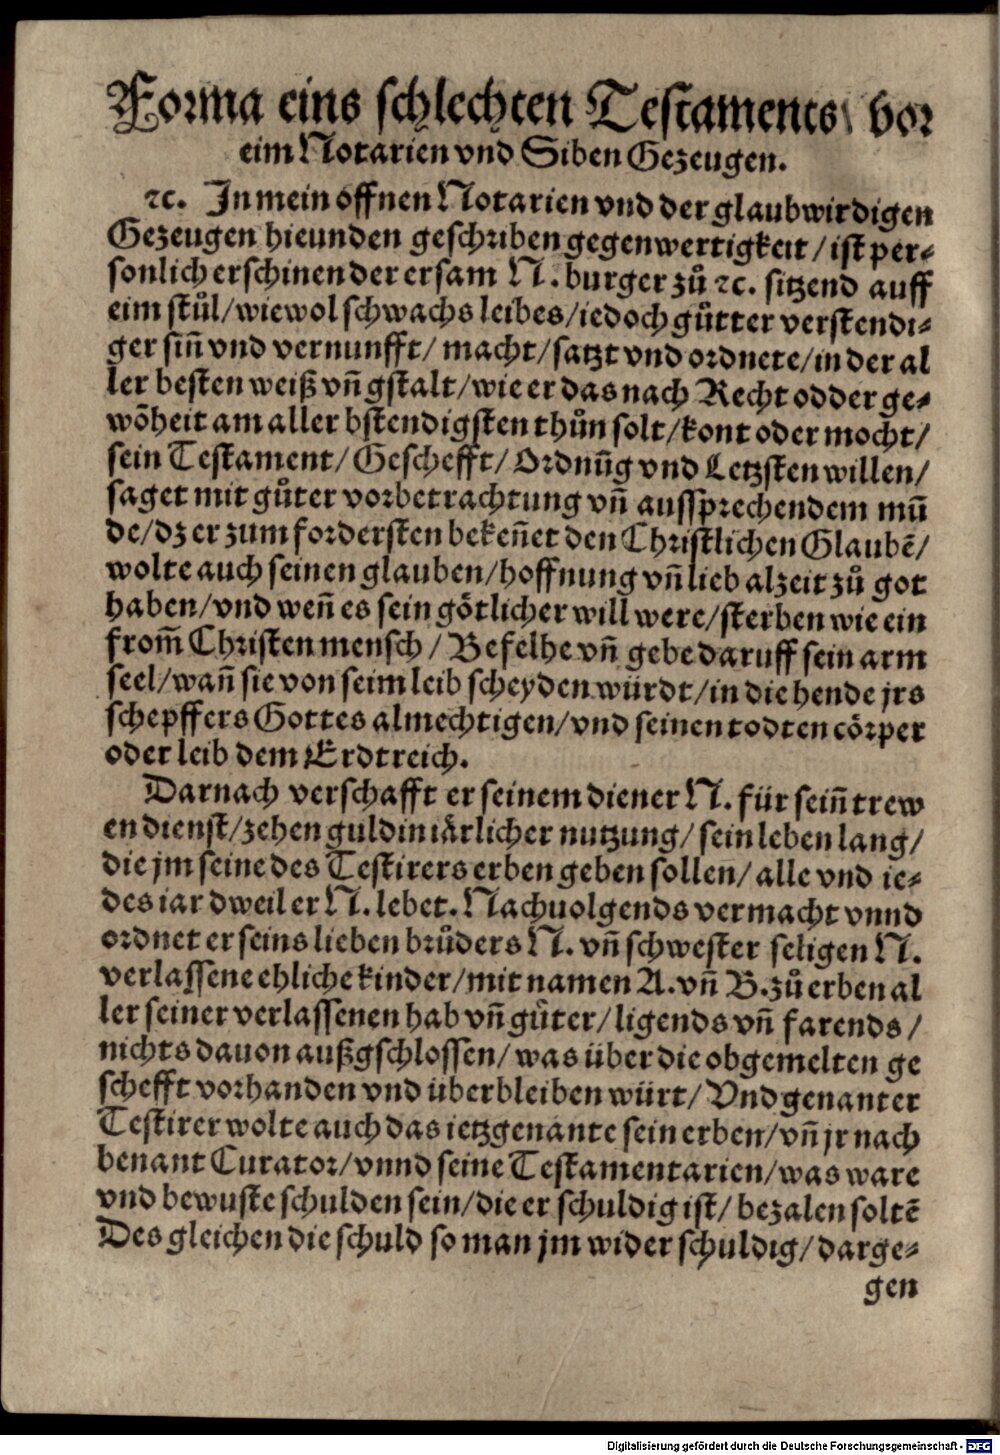 Forma eins schlechten Testaments / vor
eim Notarien vnd Siben Gezeugen.
ꝛc. In mein offnen Notarien vnd der glaubwirdigen
Gezeugen hieunden geschriben gegenwertigkeit / ist per⸗
sonlich erschinen der ersam N. burger zů ꝛc. sitzend auff
eim stůl / wiewol schwachs leibes / iedoch gůtter verstendi⸗
ger siñ vnd vernunfft / macht / satzt vnd ordnete / in der al
ler besten weiß vñ gstalt / wie er das nach Recht odder ge⸗
wõheit am aller bstendigsten thůn solt / kont oder mocht /
sein Testament / Geschefft / Ordnũg vnd Letzsten willen /
saget mit gůter vorbetrachtung vñ aussprechendem mũ
de / dz er zum fordersten bekeñet den Christlichen Glaubẽ /
wolte auch seinen glauben / hoffnung vñ lieb alzeit zů got
haben / vnd weñ es sein götlicher will were / sterben wie ein
from̃ Christen mensch / Befelhe vñ gebe daruff sein arm
seel / wañ sie von seim leib scheyden würdt / in die hende jrs
schepffers Gottes almechtigen / vnd seinen todten cörper
oder leib dem Erdtreich.
Darnach verschafft er seinem diener N. für seiñ trew
en dienst / zehen guldin iärlicher nutzung / sein leben lang /
die jm seine des Testirers erben geben sollen / alle vnd ie⸗
des iar dweil er N. lebet. Nachuolgends vermacht vnnd
ordnet er seins lieben brůders N. vñ schwester seligen N.
verlassene ehliche kinder / mit namen A. vñ B. zů erben al
ler seiner verlassenen hab vñ gůter / ligends vñ farends /
nichts dauon außgschlossen / was über die obgemelten ge
schefft vorhanden vnd überbleiben würt / Vnd genanter
Testirer wolte auch das ietzgenante sein erben / vñ jr nach
benant Curator / vnnd seine Testamentarien / was ware
vnd bewuste schulden sein / die er schuldig ist / bezalen soltẽ
Des gleichen die schuld so man jm wider schuldig / darge⸗
gen
Digitalisierung gefördert durch die Deutsche Forschungsgemeinschaft - DFG